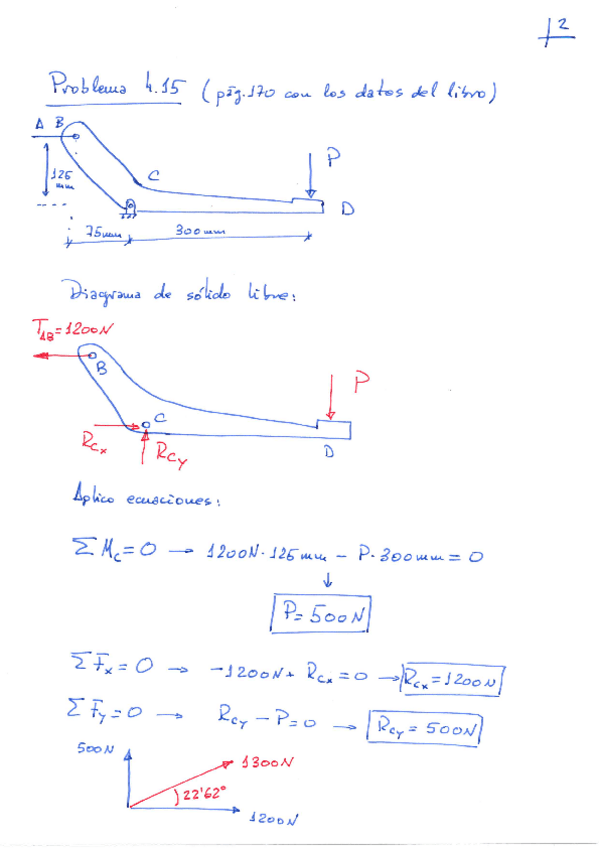 2
Problema 4.15 (pág.170 con los datos del libro)
A B
C
P
125 mm
D
75mm 300mm
Diagrama de sólido libre:
T_AB=1200N
B
P
C
R_Cx
R_Cy
D
Aplico ecuaciones:
ΣM_C=0 → 1200N·125mm - P·300mm=0
↓
P=500N
ΣF̄x=0 → -1200N+ R_Cx=0 → R_Cx=1200N
ΣF̄y=0 → R_Cy-P=0 → R_Cy=500N
500N
1300N
22'62°
1200N